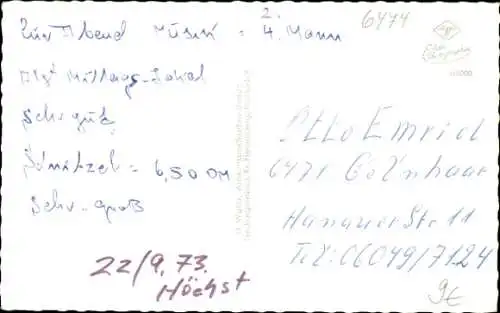 2.
Zur Abend Musik = 4. Mann
Mittags-Lokal
Sehr gut
Schnitzel = 6,50 DM
Sehr - groß
22/9.73.
Höchst
6474
Otto Emrich
6471 Gelnhaar
Hanauer Str. 11
Tel: 06049/7124
9€